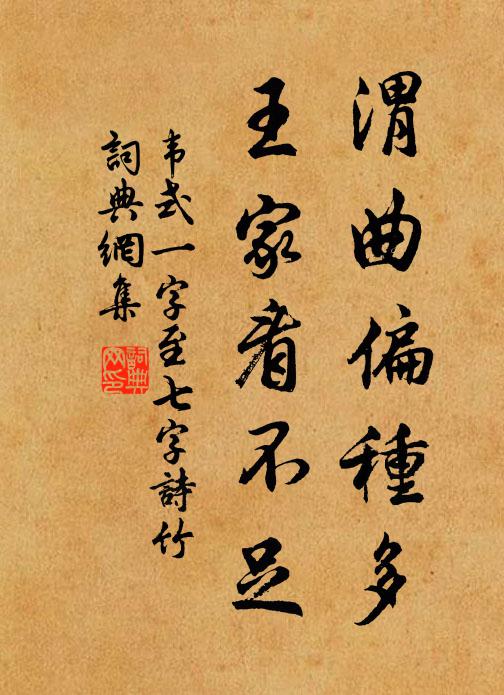 渭曲偏種多
王家看不足
韦式一字至七字詩竹
詞典網集
詞典網印